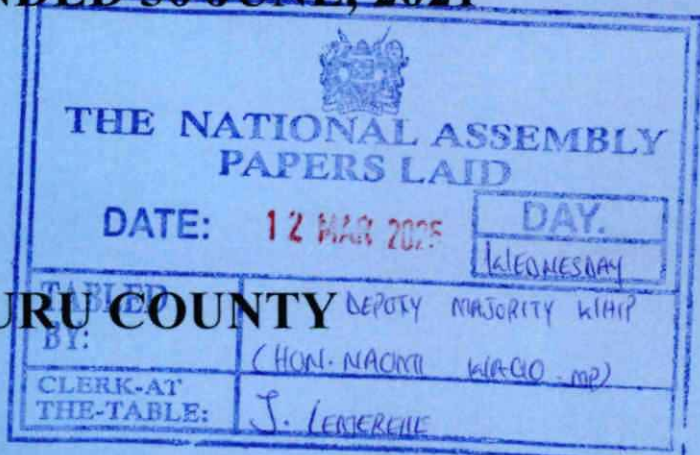 NDED 30 JUNE, 2021
THE NATIONAL ASSEMBLY
PAPERS LAID
DATE: 12 MAR 2025
DAY.
WEDNESDAY
TABLED
BY:
DEPUTY MAJORITY WHIP
(HON. NAOMI WAQO. MP)
URU COUNTY
CLERK-AT
THE-TABLE:
J.